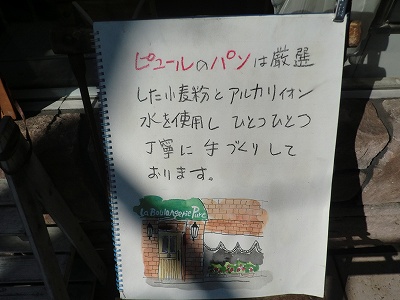 ピュールのパンは厳選
した小麦粉とアルカリイオン
水を使用し ひとつひとつ
丁寧に 手づくりして
おります。
La Boulangerie Pure